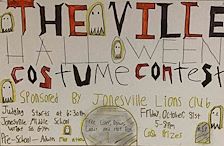 THE VILLE
HALLOWEEN
COSTUME CONTEST
Sponsored By Jonesville Lions Club
Judging Starts at 6:30pm
Jonesville Middle School
Friday, October 31st
5-8pm
Cash Prizes
Pre-School - Adults